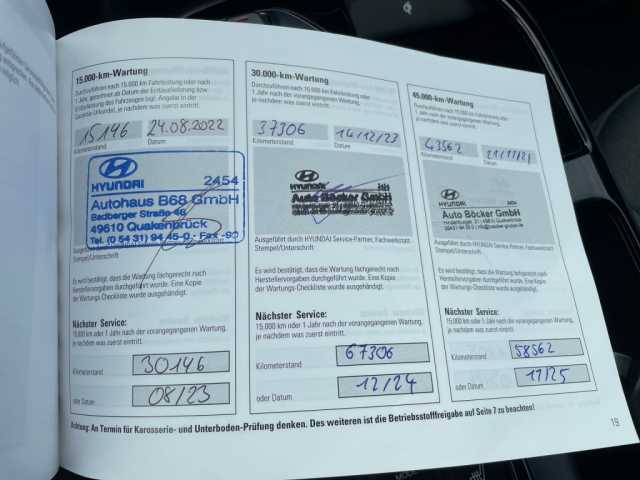 15.000-km-Wartung
Durchzuführen nach 15.000 km Fahrleistung oder nach
1 Jahr, gerechnet ab Datum der Erstauslieferung bzw.
Erstzulassung des Fahrzeuges (vgl. Angabe in der
Garantie-Urkunde), je nachdem was zuerst eintritt.
15146 24.08.2022
Kilometerstand Datum
HYUNDAI 2454
Autohaus B68 GmbH
Badberger Straße 46
49610 Quakenbrück
Tel. (0 54 31) 94 45-0 - Fax -90
Es wird bestätigt, dass die Wartung fachgerecht nach
Herstellervorgaben durchgeführt wurde. Eine Kopie
der Wartungs-Checkliste wurde ausgehändigt.
Nächster Service:
15.000 km oder 1 Jahr nach der vorangegangenen Wartung,
je nachdem was zuerst eintritt.
Kilometerstand 30146
oder Datum 08/23
30.000-km-Wartung
Durchzuführen nach 15.000 km Fahrleistung oder
1 Jahr nach der vorangegangenen Wartung,
je nachdem was zuerst eintritt.
37306 14/12/23
Kilometerstand Datum
HYUNDAI
Auto Böcker GmbH
Ausgeführt durch HYUNDAI Service-Partner, Fachwerkstatt
Stempel/Unterschrift
Es wird bestätigt, dass die Wartung fachgerecht nach
Herstellervorgaben durchgeführt wurde. Eine Kopie
der Wartungs-Checkliste wurde ausgehändigt.
Nächster Service:
15.000 km oder 1 Jahr nach der vorangegangenen Wartung,
je nachdem was zuerst eintritt.
Kilometerstand 67306
oder Datum 12/24
45.000-km-Wartung
Durchzuführen nach 15.000 km Fahrleistung oder
1 Jahr nach der vorangegangenen Wartung,
je nachdem was zuerst eintritt.
43562
Kilometerstand Datum
HYUNDAI
Auto Böcker GmbH
Ausgeführt durch HYUNDAI Service-Partner, Fachwerkstatt
Stempel/Unterschrift
Es wird bestätigt, dass die Wartung fachgerecht nach
Herstellervorgaben durchgeführt wurde. Eine Kopie
der Wartungs-Checkliste wurde ausgehändigt.
Nächster Service:
15.000 km oder 1 Jahr nach der vorangegangenen Wartung,
je nachdem was zuerst eintritt.
Kilometerstand 58562
oder Datum 11/25
Achtung: An Termin für Karosserie- und Unterboden-Prüfung denken. Des weiteren ist die Betriebsstofffreigabe auf Seite 7 zu beachten!
19